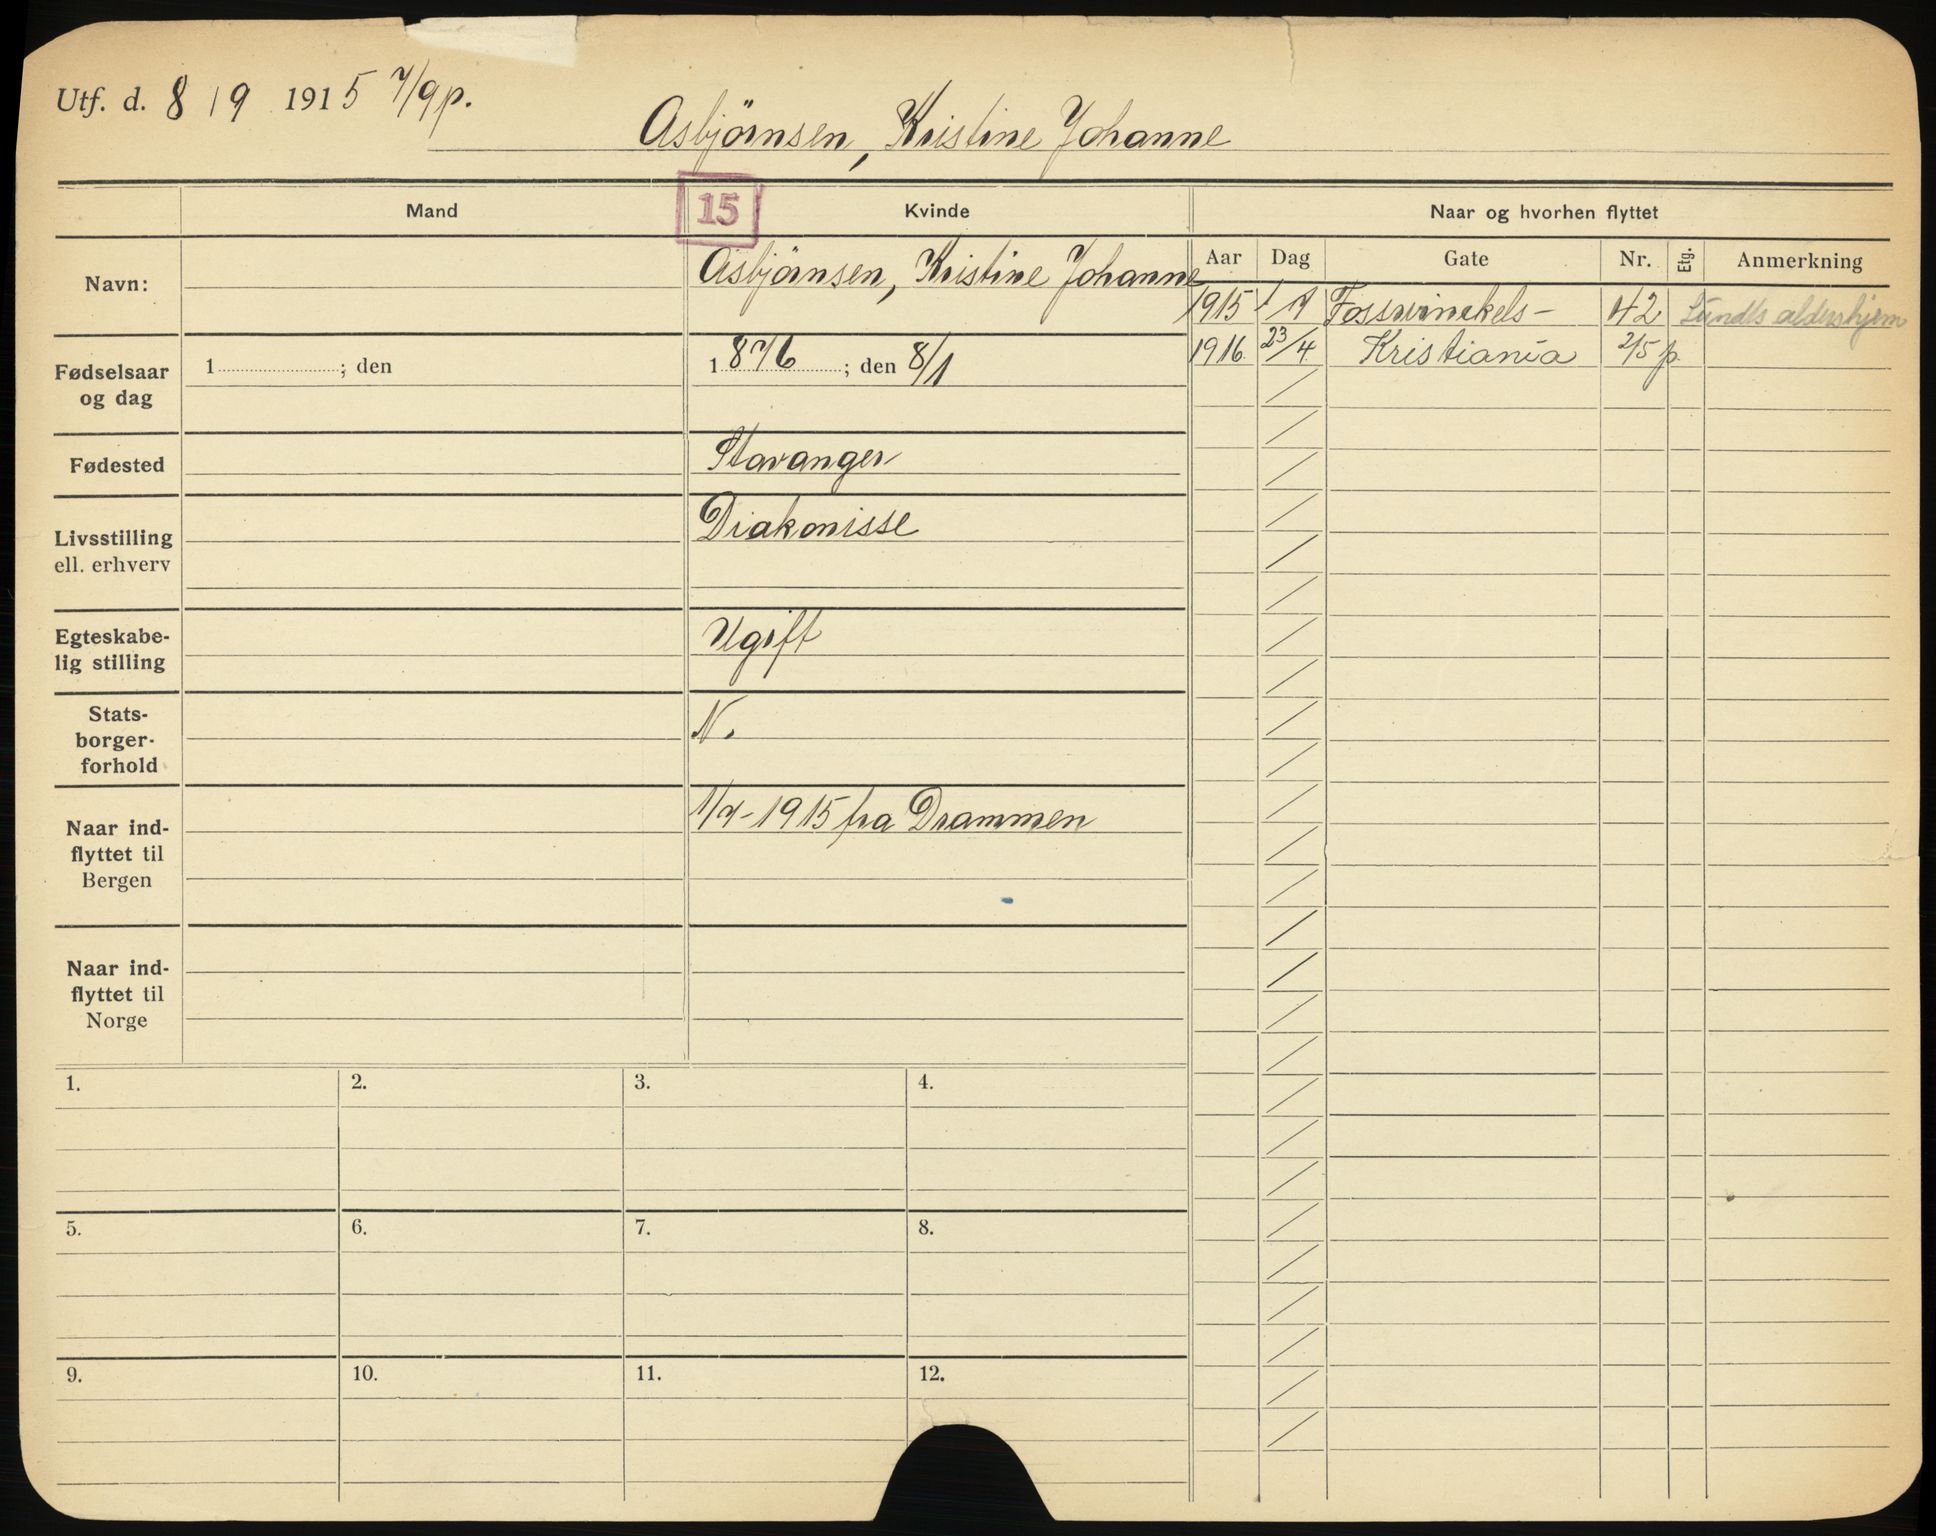 Utf. d. 8/9 1915 7/9 p.
Asbjörnsen, Kristine Johanne
Mand
15
Kvinde
Naar og hvorhen flyttet
Navn:
Asbjörnsen, Kristine Johanne
Aar Dag Gate Nr. Etg. Anmerkning
1915 1/7 Fosswinckels- 42 Sundts aldershjem
1916 23/4 Kristiania 2/5 p.
Fødselsaar
og dag
1 ; den
1876 ; den 8/1
Fødested
Stavanger
Livsstilling
ell. erhverv
Diakonisse
Egteskabe-
lig stilling
Ugift
Stats-
borger-
forhold
N.
Naar ind-
flyttet til
Bergen
1/7-1915 fra Drammen
Naar ind-
flyttet til
Norge
1. 2. 3. 4.
5. 6. 7. 8.
9. 10. 11. 12.